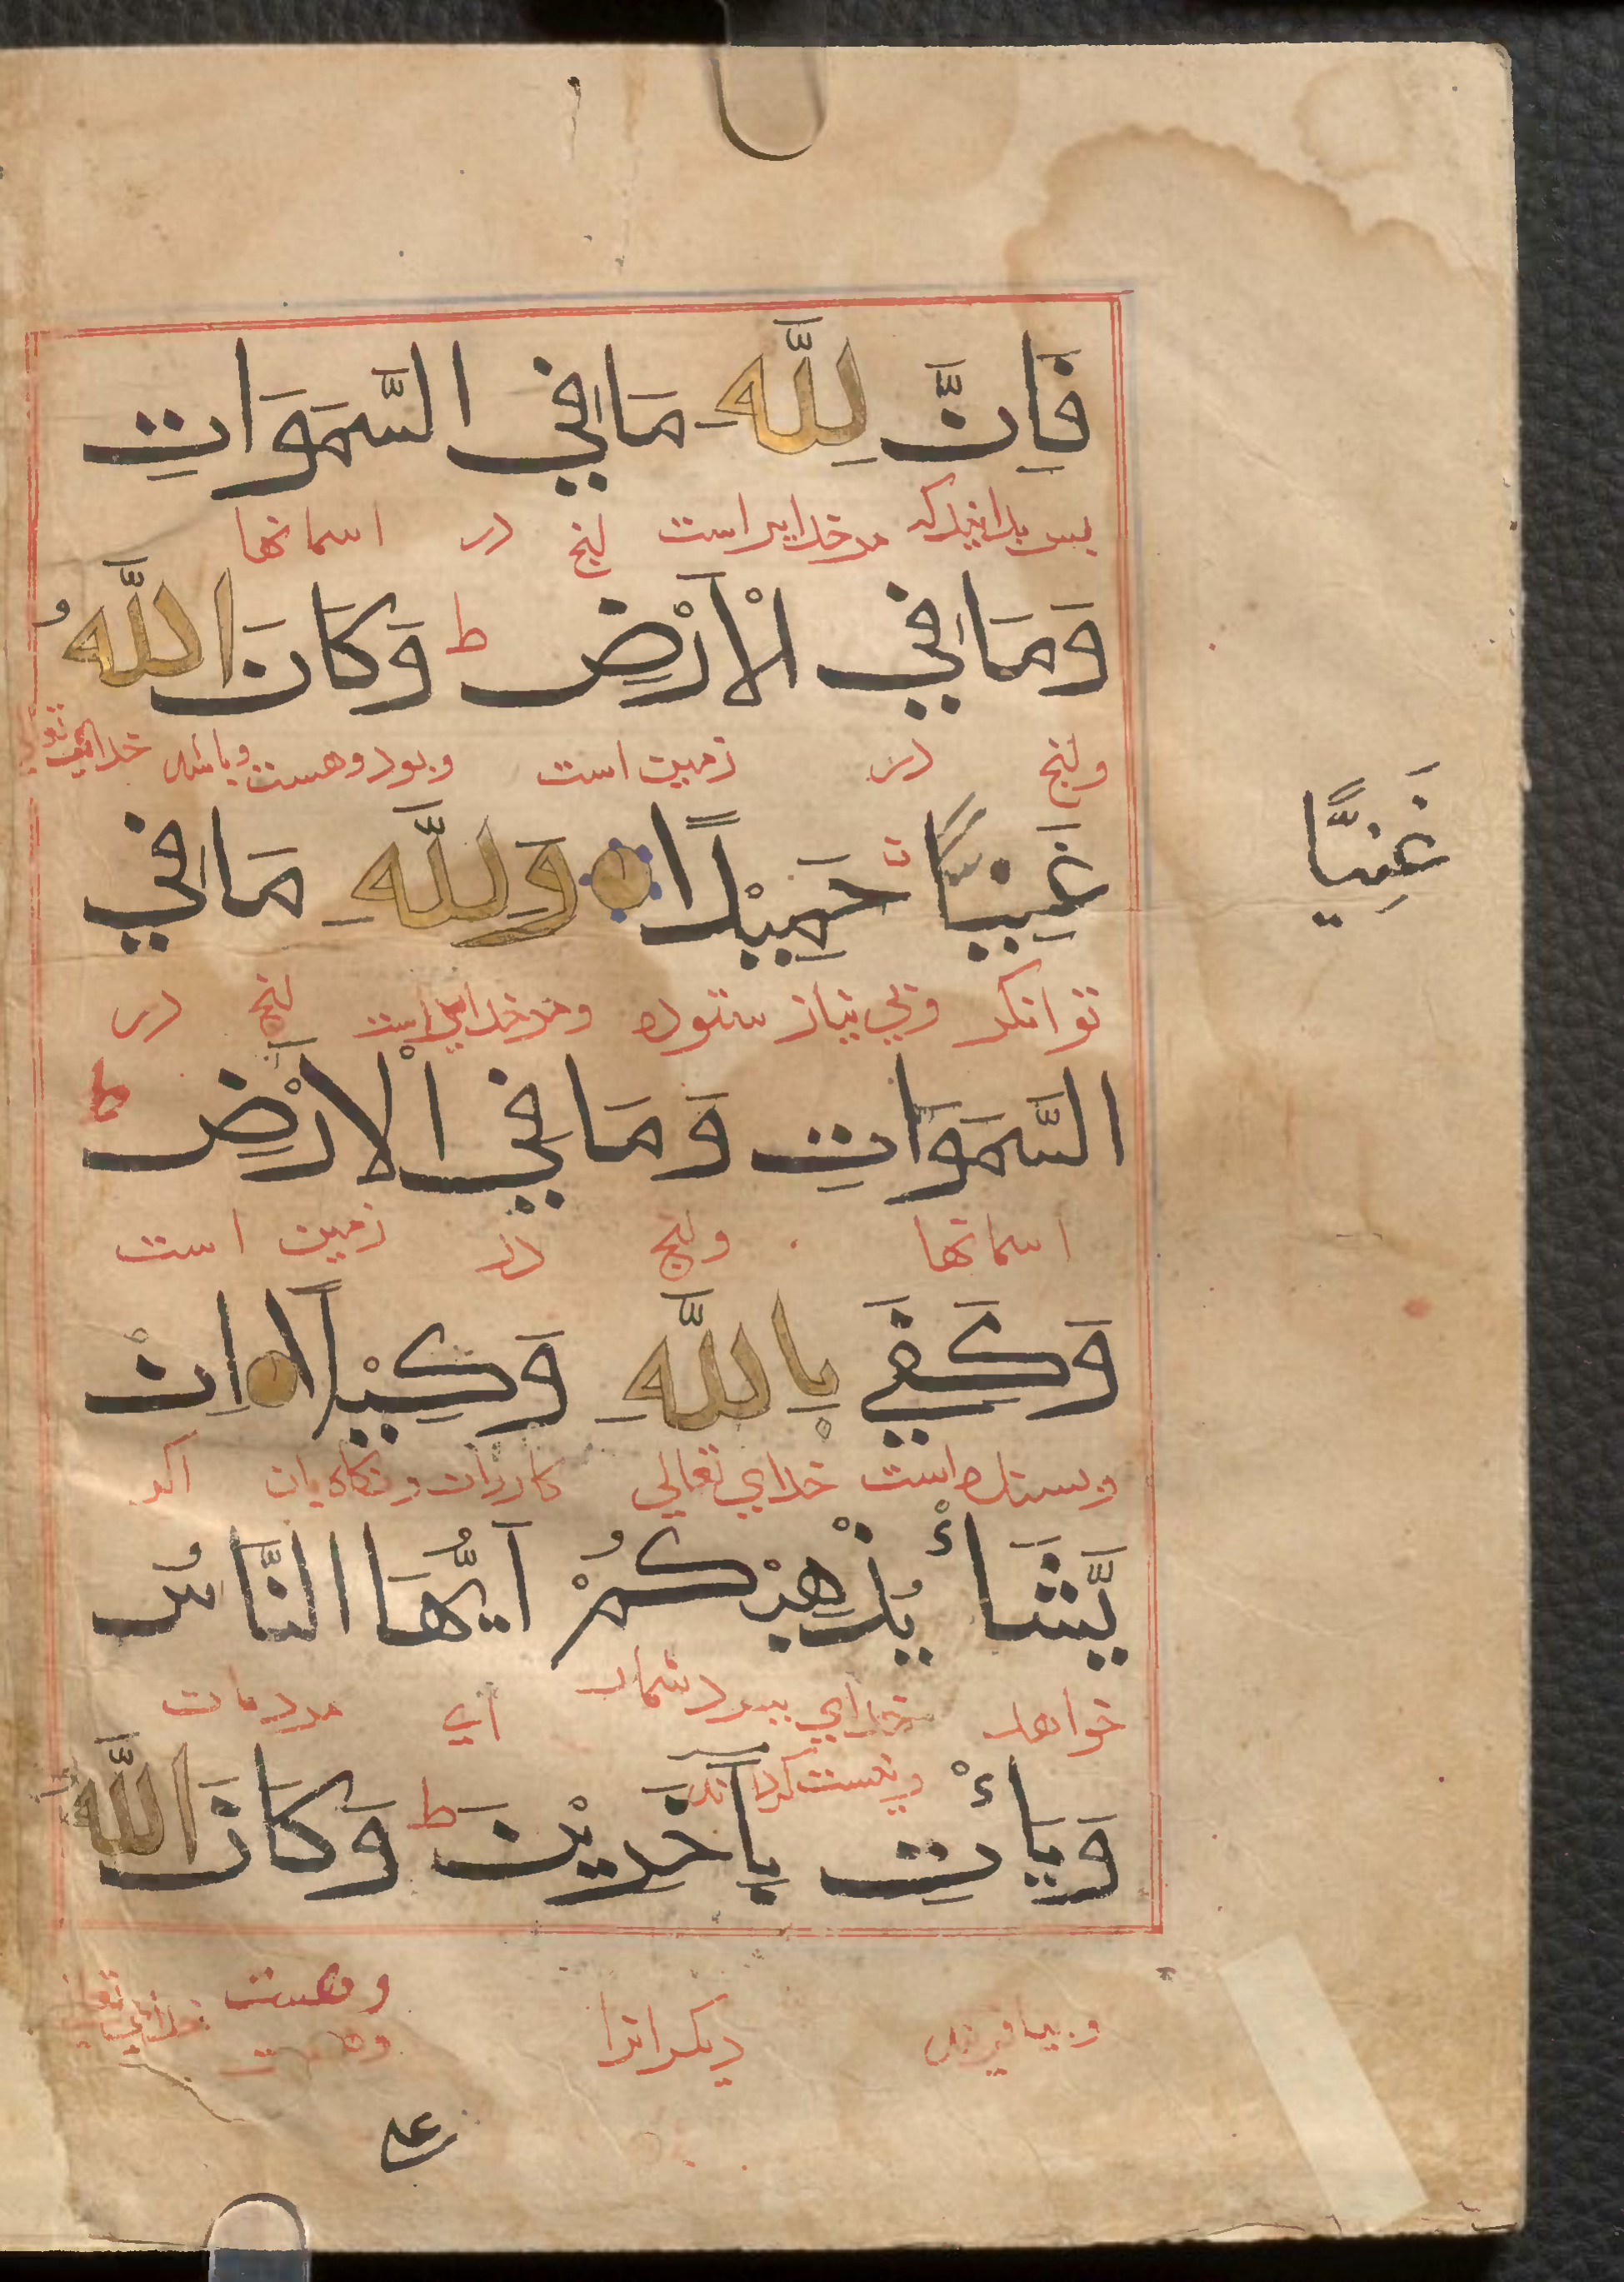 فَاِنَّ لِلَّهِ مَا فِي السَّمَوَاتِ
بس بدانید که مر خدایراست انچ در اسمانها
وَمَا فِي الْاَرْضِ ط وَكَانَ اللَّهُ
وانچ در زمین است و بود و هست و باشد خدای تعالی
غَنِيًّا حَمِيْدًا وَلِلَّهِ مَا فِي
غَنِيًّا
توانکر و بی نیاز ستوده و مر خدایراست انچ در
السَّمَوَاتِ وَمَا فِي الْاَرْضِ ط
اسمانها وانچ در زمین است
وَكَفَى بِاللَّهِ وَكِيْلًا اِنْ
و بسنده است خدای تعالی کاردان و نکاه بان اکر
يَّشَأْ يُذْهِبْكُمْ اَيُّهَا النَّاسُ
خواهد خدای ببرد شمارا ای مردمان
و نیست کرداند
وَيَأْتِ بِآخَرِيْنَ ط وَكَانَ اللَّهُ
و بیافریند دیکرانرا و هست خدای تعالی